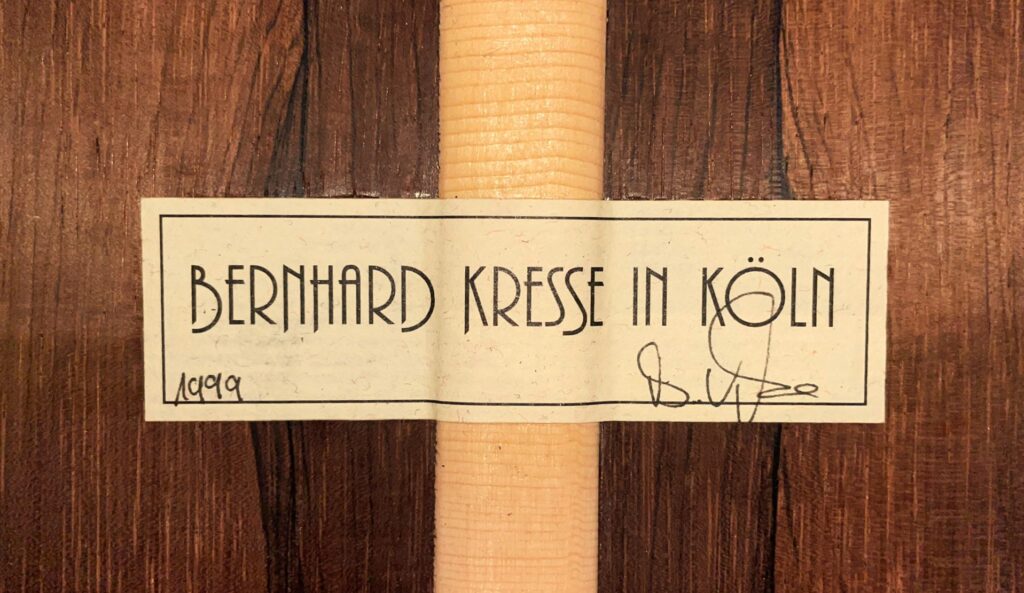 BERNHARD KRESSE IN KÖLN
1999